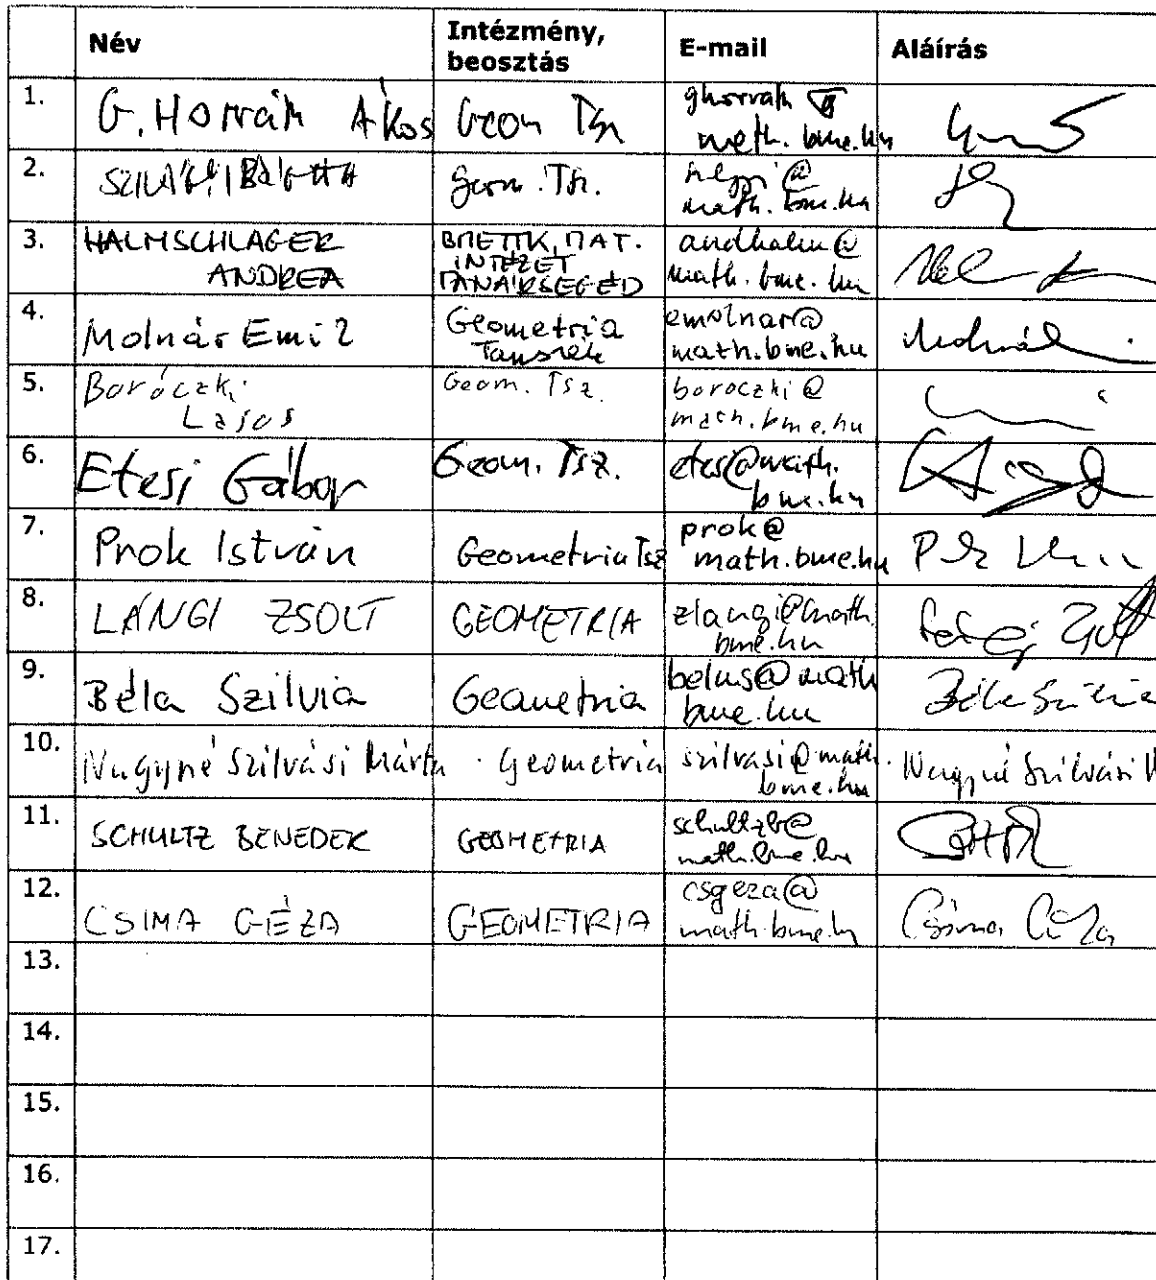 Név Intézmény, beosztás E-mail Aláírás
1. G. Horváth Ákos Geom Tsz ghorvath @ math.bme.hu
2. SZILÁGYI Geom. Tsz. @ math.bme.hu
3. HALMSCHLAGER ANDREA BMETTK, MAT. INTÉZET TANÁRSEGÉD andhalm@ math.bme.hu
4. Molnár Emil Geometria Tanszék emolnar@ math.bme.hu Molnár
5. Boröczki Lajos Geom. Tsz. boroczki@ math.bme.hu
6. Etesi Gábor Geom. Tsz. etesi@math. bme.hu
7. Prok István Geometria Tsz prok@ math.bme.hu
8. LÁNGI ZSOLT GEOMETRIA zlangi@math. bme.hu Lángi Zsolt
9. Béla Szilvia Geometria belus@math bme.hu Béla Szilvia
10. Nagyné Szilvási Márta Geometria szilvasi@math. bme.hu Nagyné Szilvási M
11. SCHULTZ BENEDEK GEOMETRIA schultzb@ math.bme.hu
12. CSIMA GÉZA GEOMETRIA csgeza@ math.bme.hu Csima Géza
13.
14.
15.
16.
17.